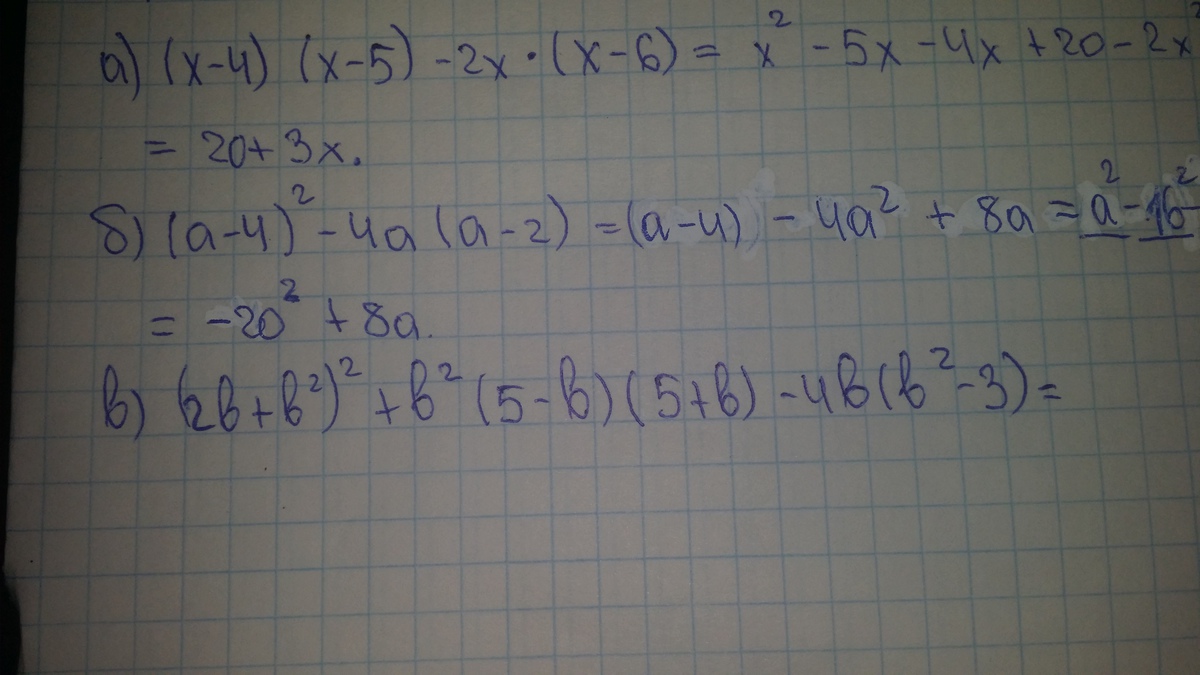 а) (x-4) (x-5) -2x·(x-6) = x² -5x -4x +20 -2x²
= 20+3x.
б) (a-4)² -4a (a-2) = (a-4) - 4a² + 8a = a² - 16²
= -20² + 8a.
в) (2в+в²)² + в² (5-в)(5+в) -4в(в²-3) =